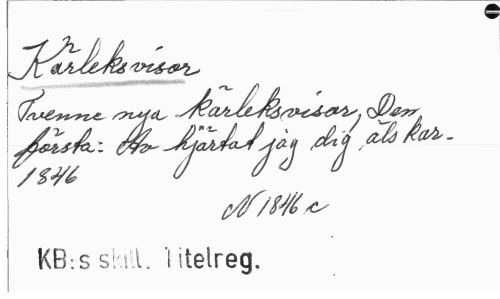 Kärleksvisor
Tvenne nya kärleksvisor, Den
första: Av hjärtat jag dig älskar.
1846
N 1846 c
KB:s skill. Titelreg.